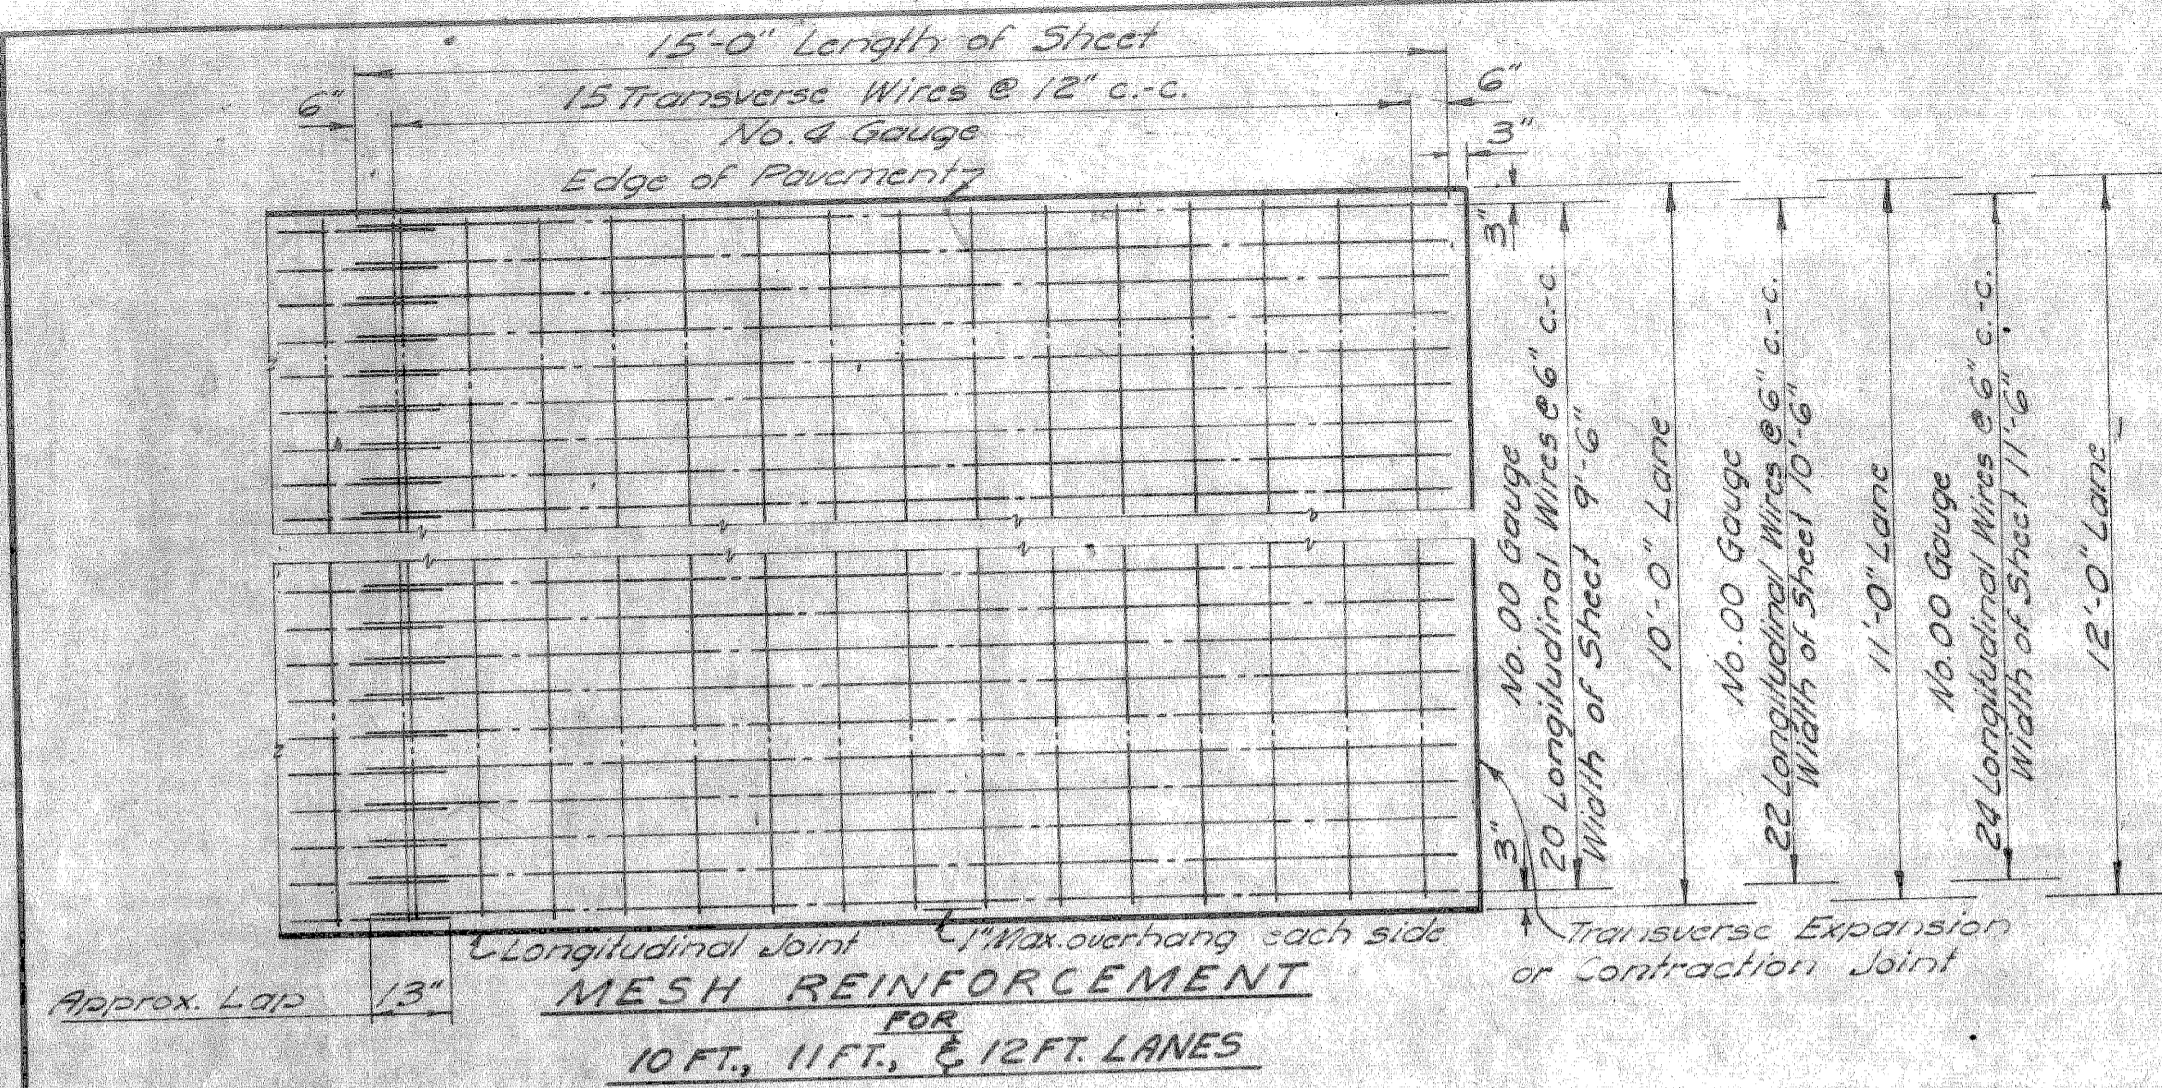 15'-0" Length of Sheet
6"
15 Transverse Wires @ 12" c.-c.
6"
No. 4 Gauge
3"
Edge of Pavement
3"
No. 00 Gauge
20 Longitudinal Wires @ 6" c.-c.
Width of Sheet 9'-6"
10'-0" Lane
No. 00 Gauge
22 Longitudinal Wires @ 6" c.-c.
Width of Sheet 10'-6"
11'-0" Lane
No. 00 Gauge
24 Longitudinal Wires @ 6" c.-c.
Width of Sheet 11'-6"
12'-0" Lane
3"
Longitudinal Joint
1" Max. overhang each side
Transverse Expansion
or Contraction Joint
Approx. Lap
13"
MESH REINFORCEMENT
FOR
10 FT., 11 FT., & 12 FT. LANES